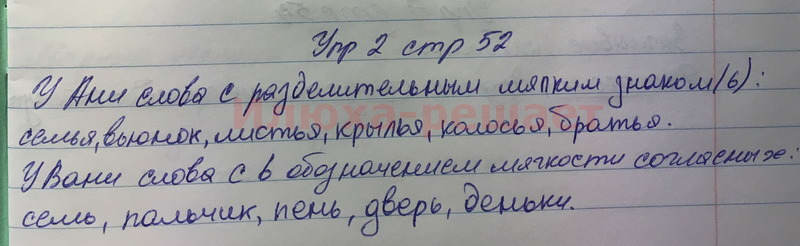 Упр 2 стр 52
У Ани слова с разделительным мягким знаком (ь):
семья, вьюнок, листья, крылья, колосья, братья.
Илюха-решает
У Вани слова с ь обозначением мягкости согласных:
семь, пальчик, пень, дверь, деньки.